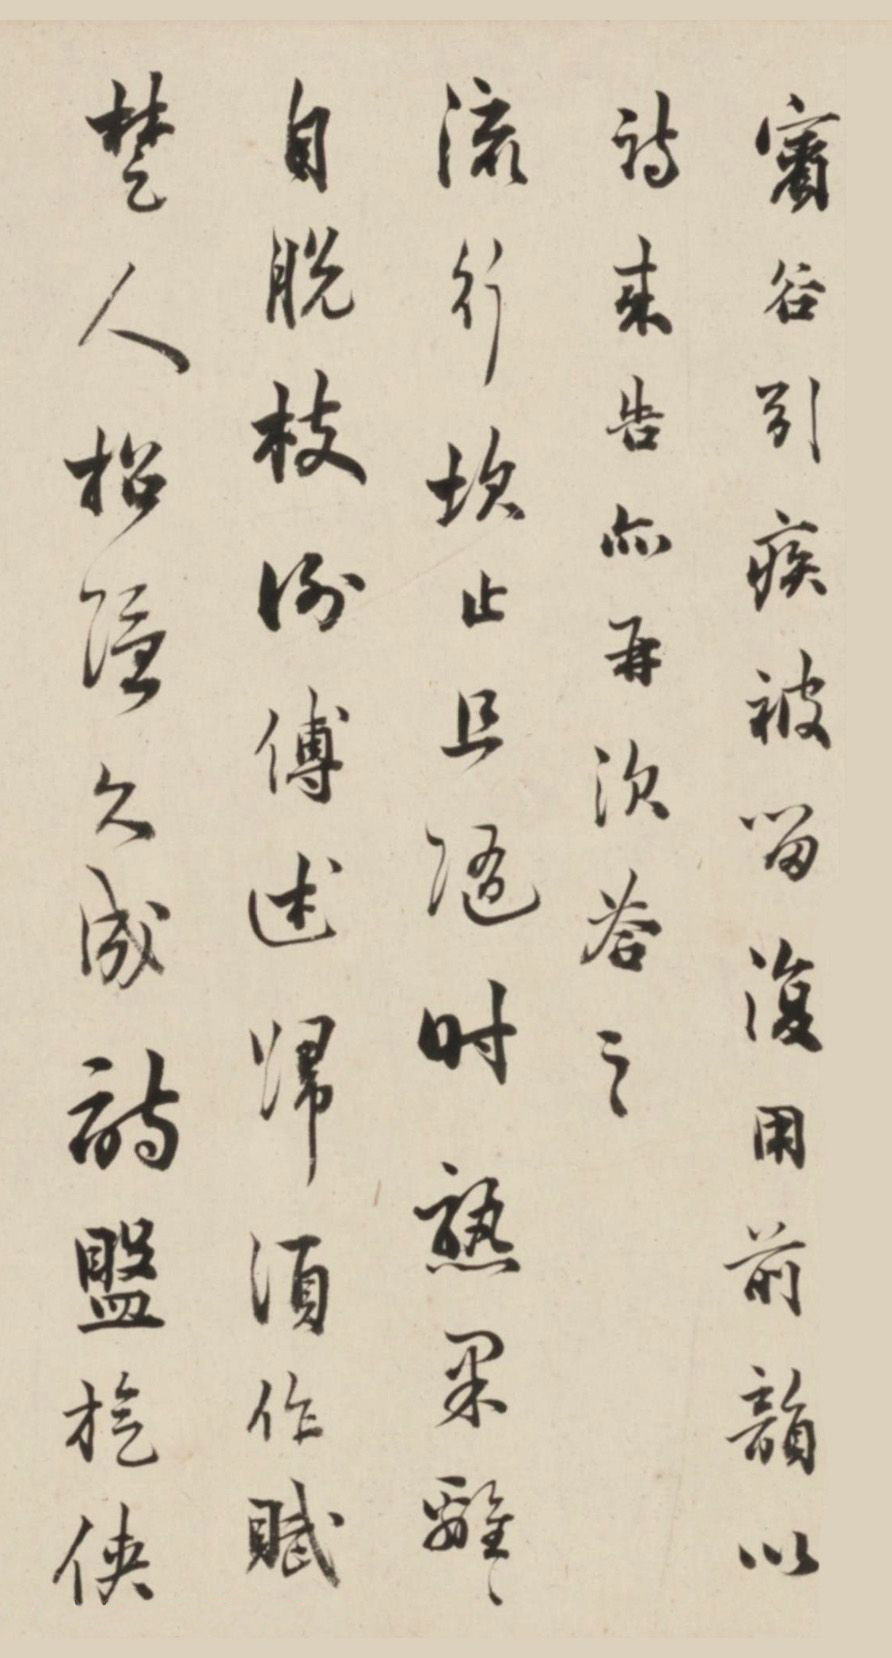 賓谷引疾被留復用前韻以
詩來告亦再次答之
流行坎止且隨時熟果離〻
自脫枝傅述歸須作賦
楚人招隱久成詩俠